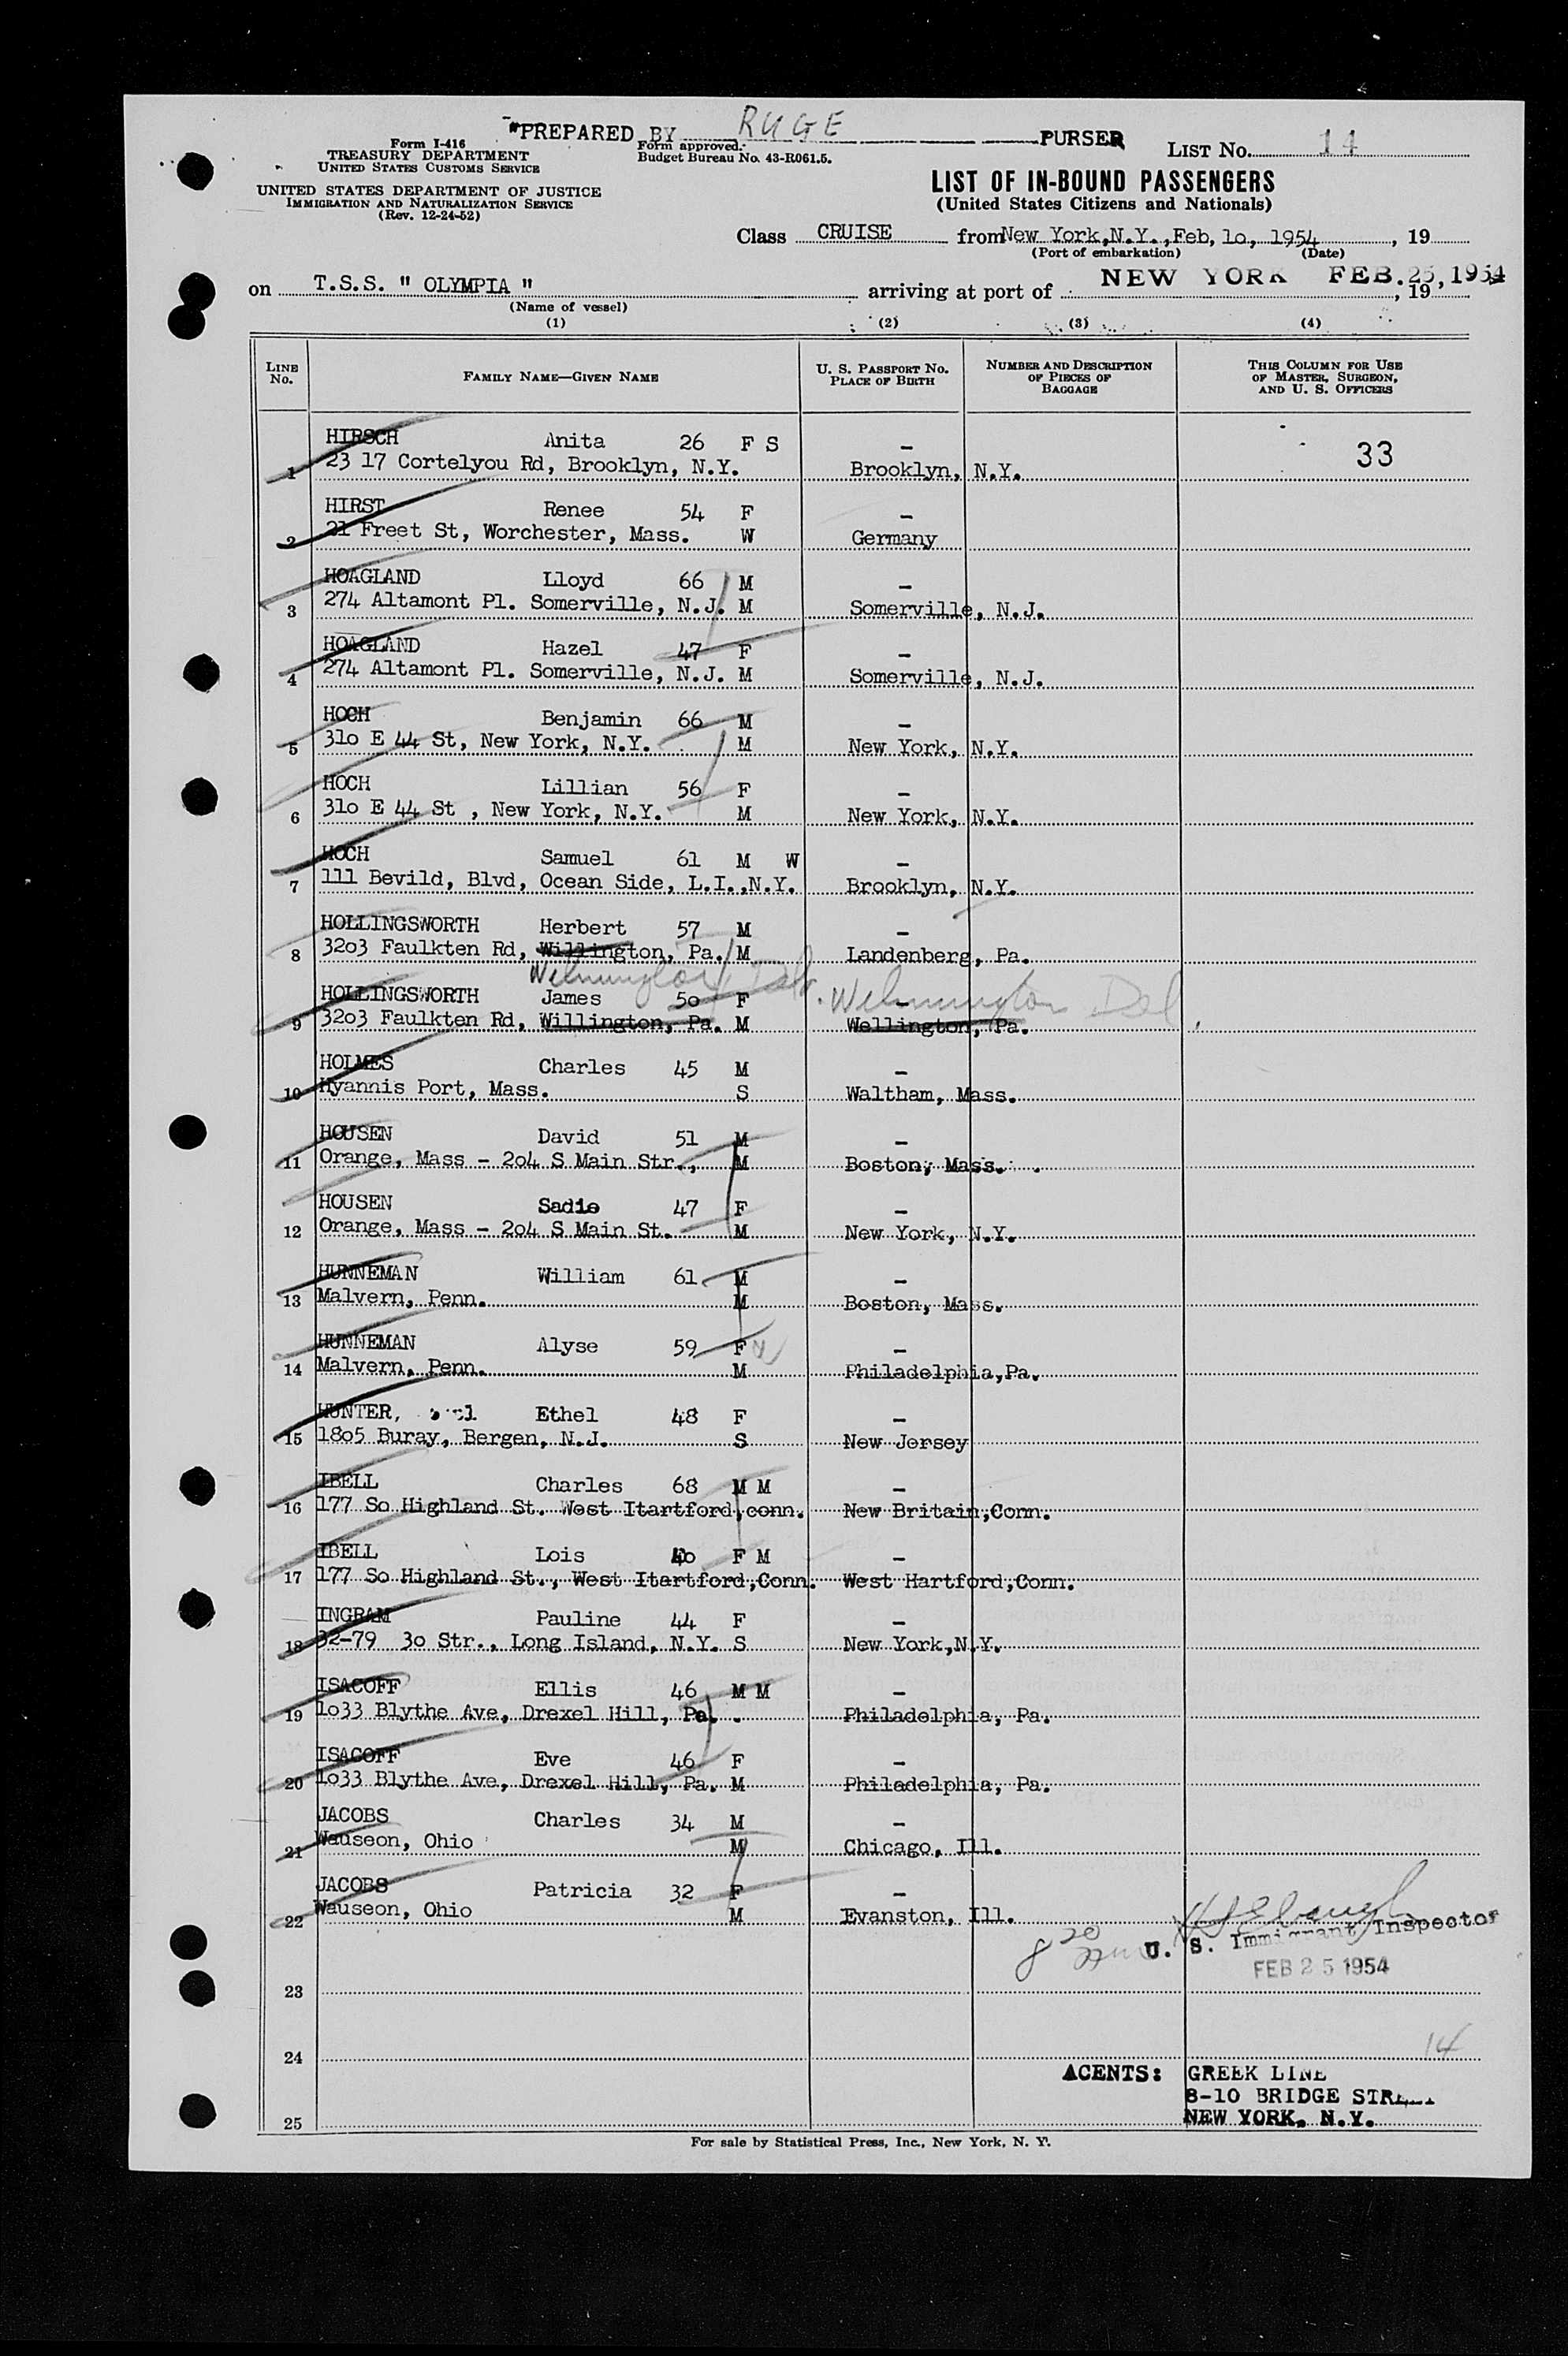 "PREPARED BY RUGE PURSER
Form I-416
TREASURY DEPARTMENT
UNITED STATES CUSTOMS SERVICE
Form approved.
Budget Bureau No. 43-R061.5.
LIST No. 14
UNITED STATES DEPARTMENT OF JUSTICE
IMMIGRATION AND NATURALIZATION SERVICE
(Rev. 12-24-52)
LIST OF IN-BOUND PASSENGERS
(United States Citizens and Nationals)
Class CRUISE from New York,N.Y.,Feb, 1o, 1954, 19
(Port of embarkation) (Date)
on T.S.S. " OLYMPIA " arriving at port of NEW YORK FEB. 25, 1954, 19
(Name of vessel)
(1) (2) (3) (4)
LINE No. FAMILY NAME—GIVEN NAME U. S. PASSPORT No. PLACE OF BIRTH NUMBER AND DESCRIPTION OF PIECES OF BAGGAGE THIS COLUMN FOR USE OF MASTER, SURGEON, AND U. S. OFFICERS
HIRSCH Anita 26 F S – 33
1 23 17 Cortelyou Rd, Brooklyn, N.Y. Brooklyn, N.Y.
HIRST Renee 54 F –
2 21 Freet St, Worchester, Mass. W Germany
HOAGLAND Lloyd 66 M –
3 274 Altamont Pl. Somerville, N.J. M Somerville, N.J.
HOAGLAND Hazel 47 F –
4 274 Altamont Pl. Somerville, N.J. M Somerville, N.J.
HOCH Benjamin 66 M –
5 31o E 44 St, New York, N.Y. M New York, N.Y.
HOCH Lillian 56 F –
6 31o E 44 St , New York, N.Y. M New York, N.Y.
HOCH Samuel 61 M W –
7 111 Bevild, Blvd, Ocean Side, L.I.,N.Y. Brooklyn, N.Y.
HOLLINGSWORTH Herbert 57 M –
8 32o3 Faulkten Rd, Willington, Pa. M Landenberg, Pa.
Wilmington Del. Wilmington Del.
HOLLINGSWORTH James 5o F –
9 32o3 Faulkten Rd, Willington, Pa. M Wellington, Pa.
HOLMES Charles 45 M –
10 Hyannis Port, Mass. S Waltham, Mass.
HOUSEN David 51 M –
11 Orange, Mass – 2o4 S Main Str., M Boston, Mass.
HOUSEN Sadie 47 F –
12 Orange, Mass – 2o4 S Main St. M New York, N.Y.
HUNNEMAN William 61 M –
13 Malvern, Penn. M Boston, Mass.
HUNNEMAN Alyse 59 F –
14 Malvern, Penn. M Philadelphia,Pa.
HUNTER, Ethel 48 F –
15 18o5 Buray, Bergen, N.J. S New Jersey
IBELL Charles 68 M M –
16 177 So Highland St. West Itartford,conn. New Britain,Conn.
IBELL Lois F M –
17 177 So Highland St., West Itartford,Conn. West Hartford,Conn.
INGRAM Pauline 44 F –
18 32-79 3o Str., Long Island, N.Y. S New York,N.Y.
ISACOFF Ellis 46 M M –
19 1o33 Blythe Ave, Drexel Hill, Pa. Philadelphia, Pa.
ISACOFF Eve 46 F –
20 1o33 Blythe Ave, Drexel Hill, Pa. M Philadelphia, Pa.
JACOBS Charles 34 M –
21 Wauseon, Ohio M Chicago, Ill.
JACOBS Patricia 32 F –
22 Wauseon, Ohio M Evanston, Ill.
U. S. Immigrant Inspector
FEB 25 1954
23
14
24
AGENTS: GREEK LINE
8-10 BRIDGE STREET
NEW YORK, N.Y.
25
For sale by Statistical Press, Inc., New York, N. Y.